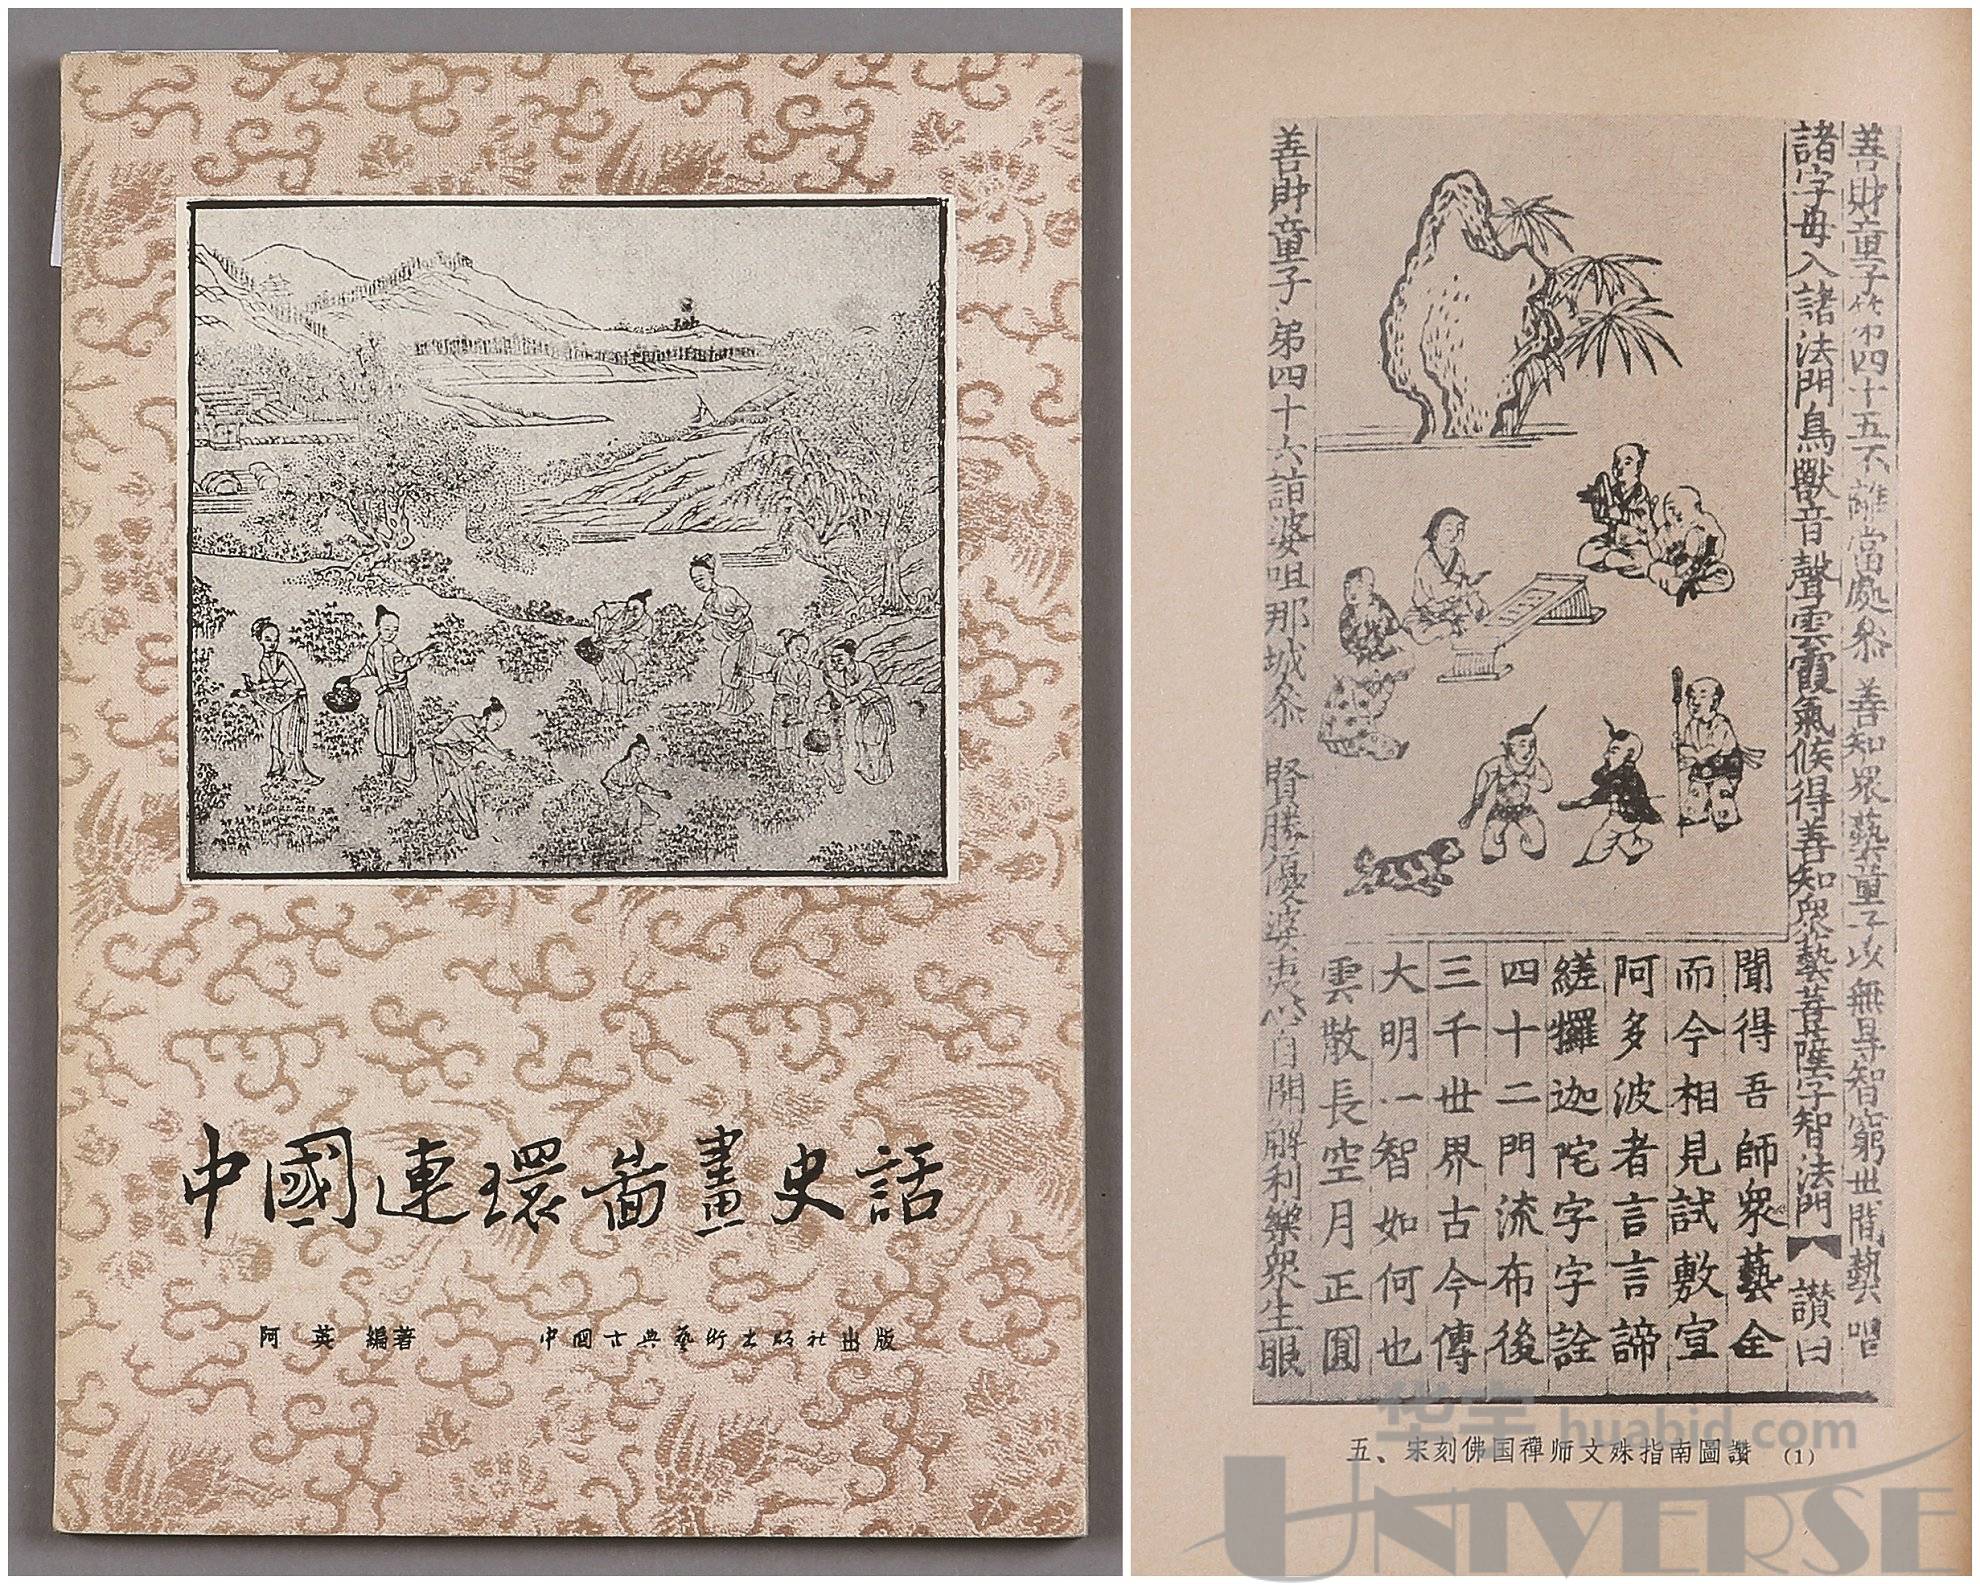 中國連環啚畫史話
阿英 編著
中國古典藝術出版社出版
善財童子
第四十五不離當處叅 善知眾藝童子以無㝵智窮世間藝 唱
諸字母入諸法門鳥獸音聲雲霞氣候得善知眾藝菩薩字智法門 讃曰
聞得吾師眾藝全
而今相見試敷宣
阿多波者言言諦
縒攞迦陀字字詮
四十二門流布後
三千世界古今傳
大明一智如何也
雲散長空月正圓
善財童子 弟四十六詣婆咀那城叅 賢勝優婆夷 自開解利樂眾生眼
五、宋刻佛国禪师文殊指南圖讚 (1)
华宇 huabid.com
UNIVERSE